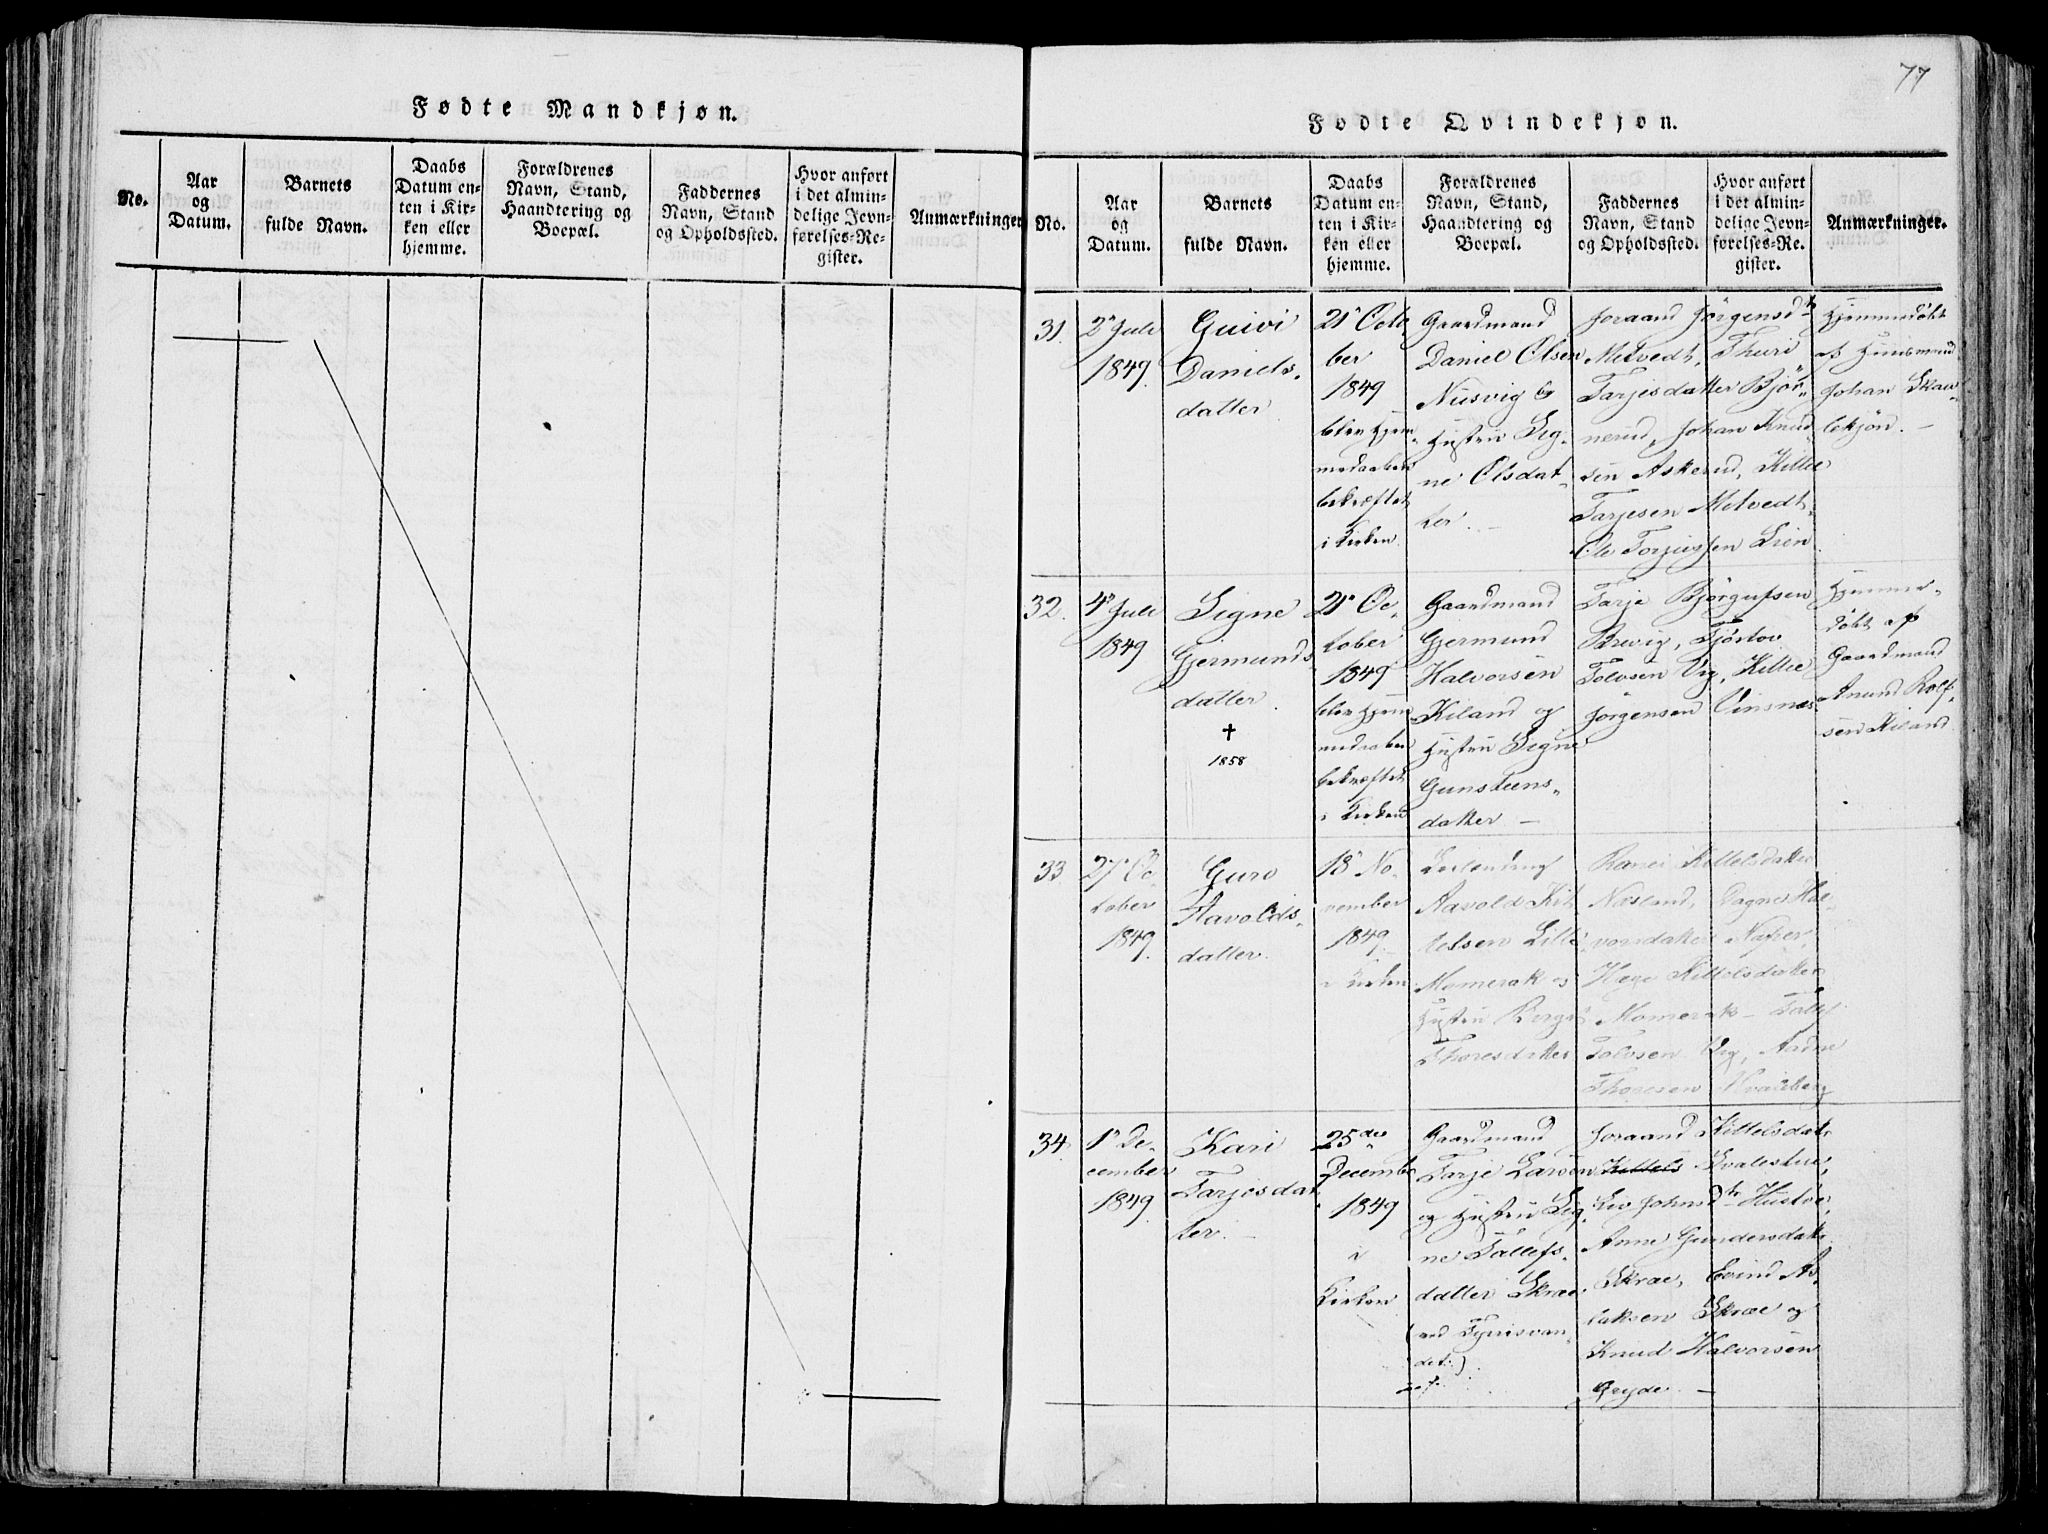 77
Fødte Mandkjøn.
No.
Aar
og
Datum.
Barnets
fulde Navn.
Daabs
Datum en-
ten i Kir-
ken eller
hjemme.
Forældrenes
Navn, Stand,
Haandtering og
Boepæl.
Faddernes
Navn, Stand
og Opholdssted.
Hvor anført
i det almin-
delige Jevn-
førelses-Re-
gister.
Anmærkninger
Fødte Qvindekjøn.
No.
Aar
og
Datum.
Barnets
fulde Navn.
Daabs
Datum en-
ten i Kir-
ken eller
hjemme.
Forældrenes
Navn, Stand,
Haandtering og
Boepæl.
Faddernes
Navn, Stand
og Opholdssted.
Hvor anført
i det almin-
delige Jevn-
førelses-Re-
gister.
Anmærkninger.
31.
2 Juli
1849.
Guivi
Daniels-
datter
21 Octo
ber
1849
blev Hjem-
medaaben
bekræftet
i Kirken.
Gaardmand
Daniel Olsen
Nusvig og
Hustru Sig-
ne Olsdat-
ter. —
Joraand Jörgensdtr
Metvedt, Thuri
Tarjesdatter Björ-
nerud, Johan Knud-
sen Askerud, Kittel
Tarjesen Metvedt,
Ole Torjussen Lien
Hjemmedøbt
af Huusmand
Johan Skau-
lekjön. —
32.
4 Juli
1849
Signe
Gjermunds
datter.
†
1858
21 Oc-
tober
1849
blev Hjem
medaaben
bekræftet
i Kirken
Gaardmand
Gjermund
Halvorsen
Kiland og
Hustru Signe
Gunsteens-
datter —
Tarje Björgufsen
Brevig, Tjöstov
Tolvsen Vig, Kittel
Jörgensen Vinsnes
Hjemme-
døbt af
Gaardmand
Anund Rolf-
sen Kiland
33
27 Oc-
tober
1849.
Guro
Aavolds-
datter.
18 No-
vember
1849.
i Kirken
Leilending
Aavold Kit
telsen Lille
Momrak og
Hustru Berge
Thoresdatter
Kittelsdatter
Næsland, Dagne Hal-
vorsdatter
Hæge Kittelsdatter
Momrak — Tallef
Tolvsen Vig, Aadne
Thoresen Kvaleberg
34.
1 De-
cember
1849.
Kari
Tarjesdat
ter. —
25de
Decembr
1849
i
Kirken
Gaardmand
Tarje Larsen
og Hustru Sig-
ne Tallefs-
datter Skree
(ved Fyrrisvan-
det).
Joraand Kittelsdatr
Kvalestue,
Liv Johnsdtr Hustvet,
Anne Gundersdatr
Skræe, Evind As-
laksen Skræe og
Knud Halvorsen
Gryde. —